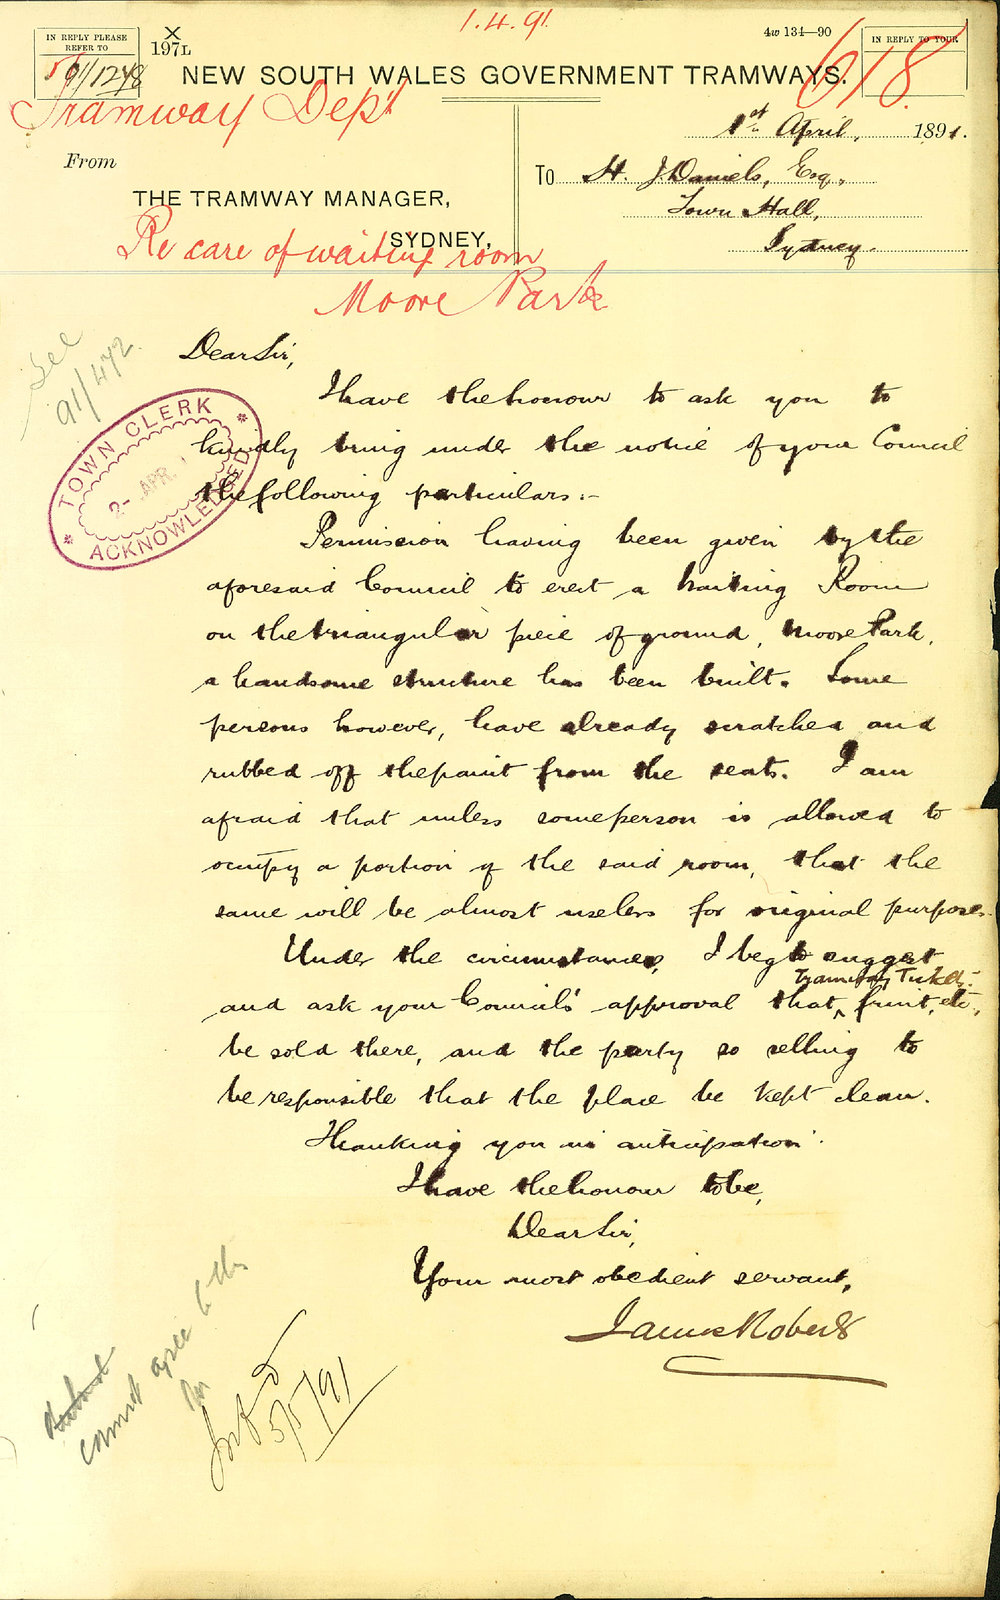 1.4.91
IN REPLY PLEASE
REFER TO
91/1248
X
197L
4w 134—90
IN REPLY TO YOUR
618
NEW SOUTH WALES GOVERNMENT TRAMWAYS.
Tramway Dept
1st April, 1891.
From
THE TRAMWAY MANAGER,
SYDNEY,
To H. J. Daniels, Esq.,
Town Hall,
Sydney.
Re care of waiting room
Moore Park
See
91/472.
TOWN CLERK
2- APR
ACKNOWLEDGED
Dear Sir,
I have the honour to ask you to
kindly bring under the notice of your Council
the following particulars:-
Permission having been given by the
aforesaid Council to erect a Waiting Room
on the triangular piece of ground, Moore Park,
a handsome structure has been built. Some
persons however, have already scratched and
rubbed off the paint from the seats. I am
afraid that unless some person is allowed to
occupy a portion of the said room, that the
same will be almost useless for original purposes.
Under the circumstances, I beg to suggest
Tramway Tickets
and ask your Council's approval that ^ fruit, etc,
be sold there, and the party so selling to
be responsible that the place be kept clean.
Thanking you in anticipation.
I have the honour to be,
Dear Sir,
Your most obedient servant,
James Roberts
cannot agree to this
5/5/91